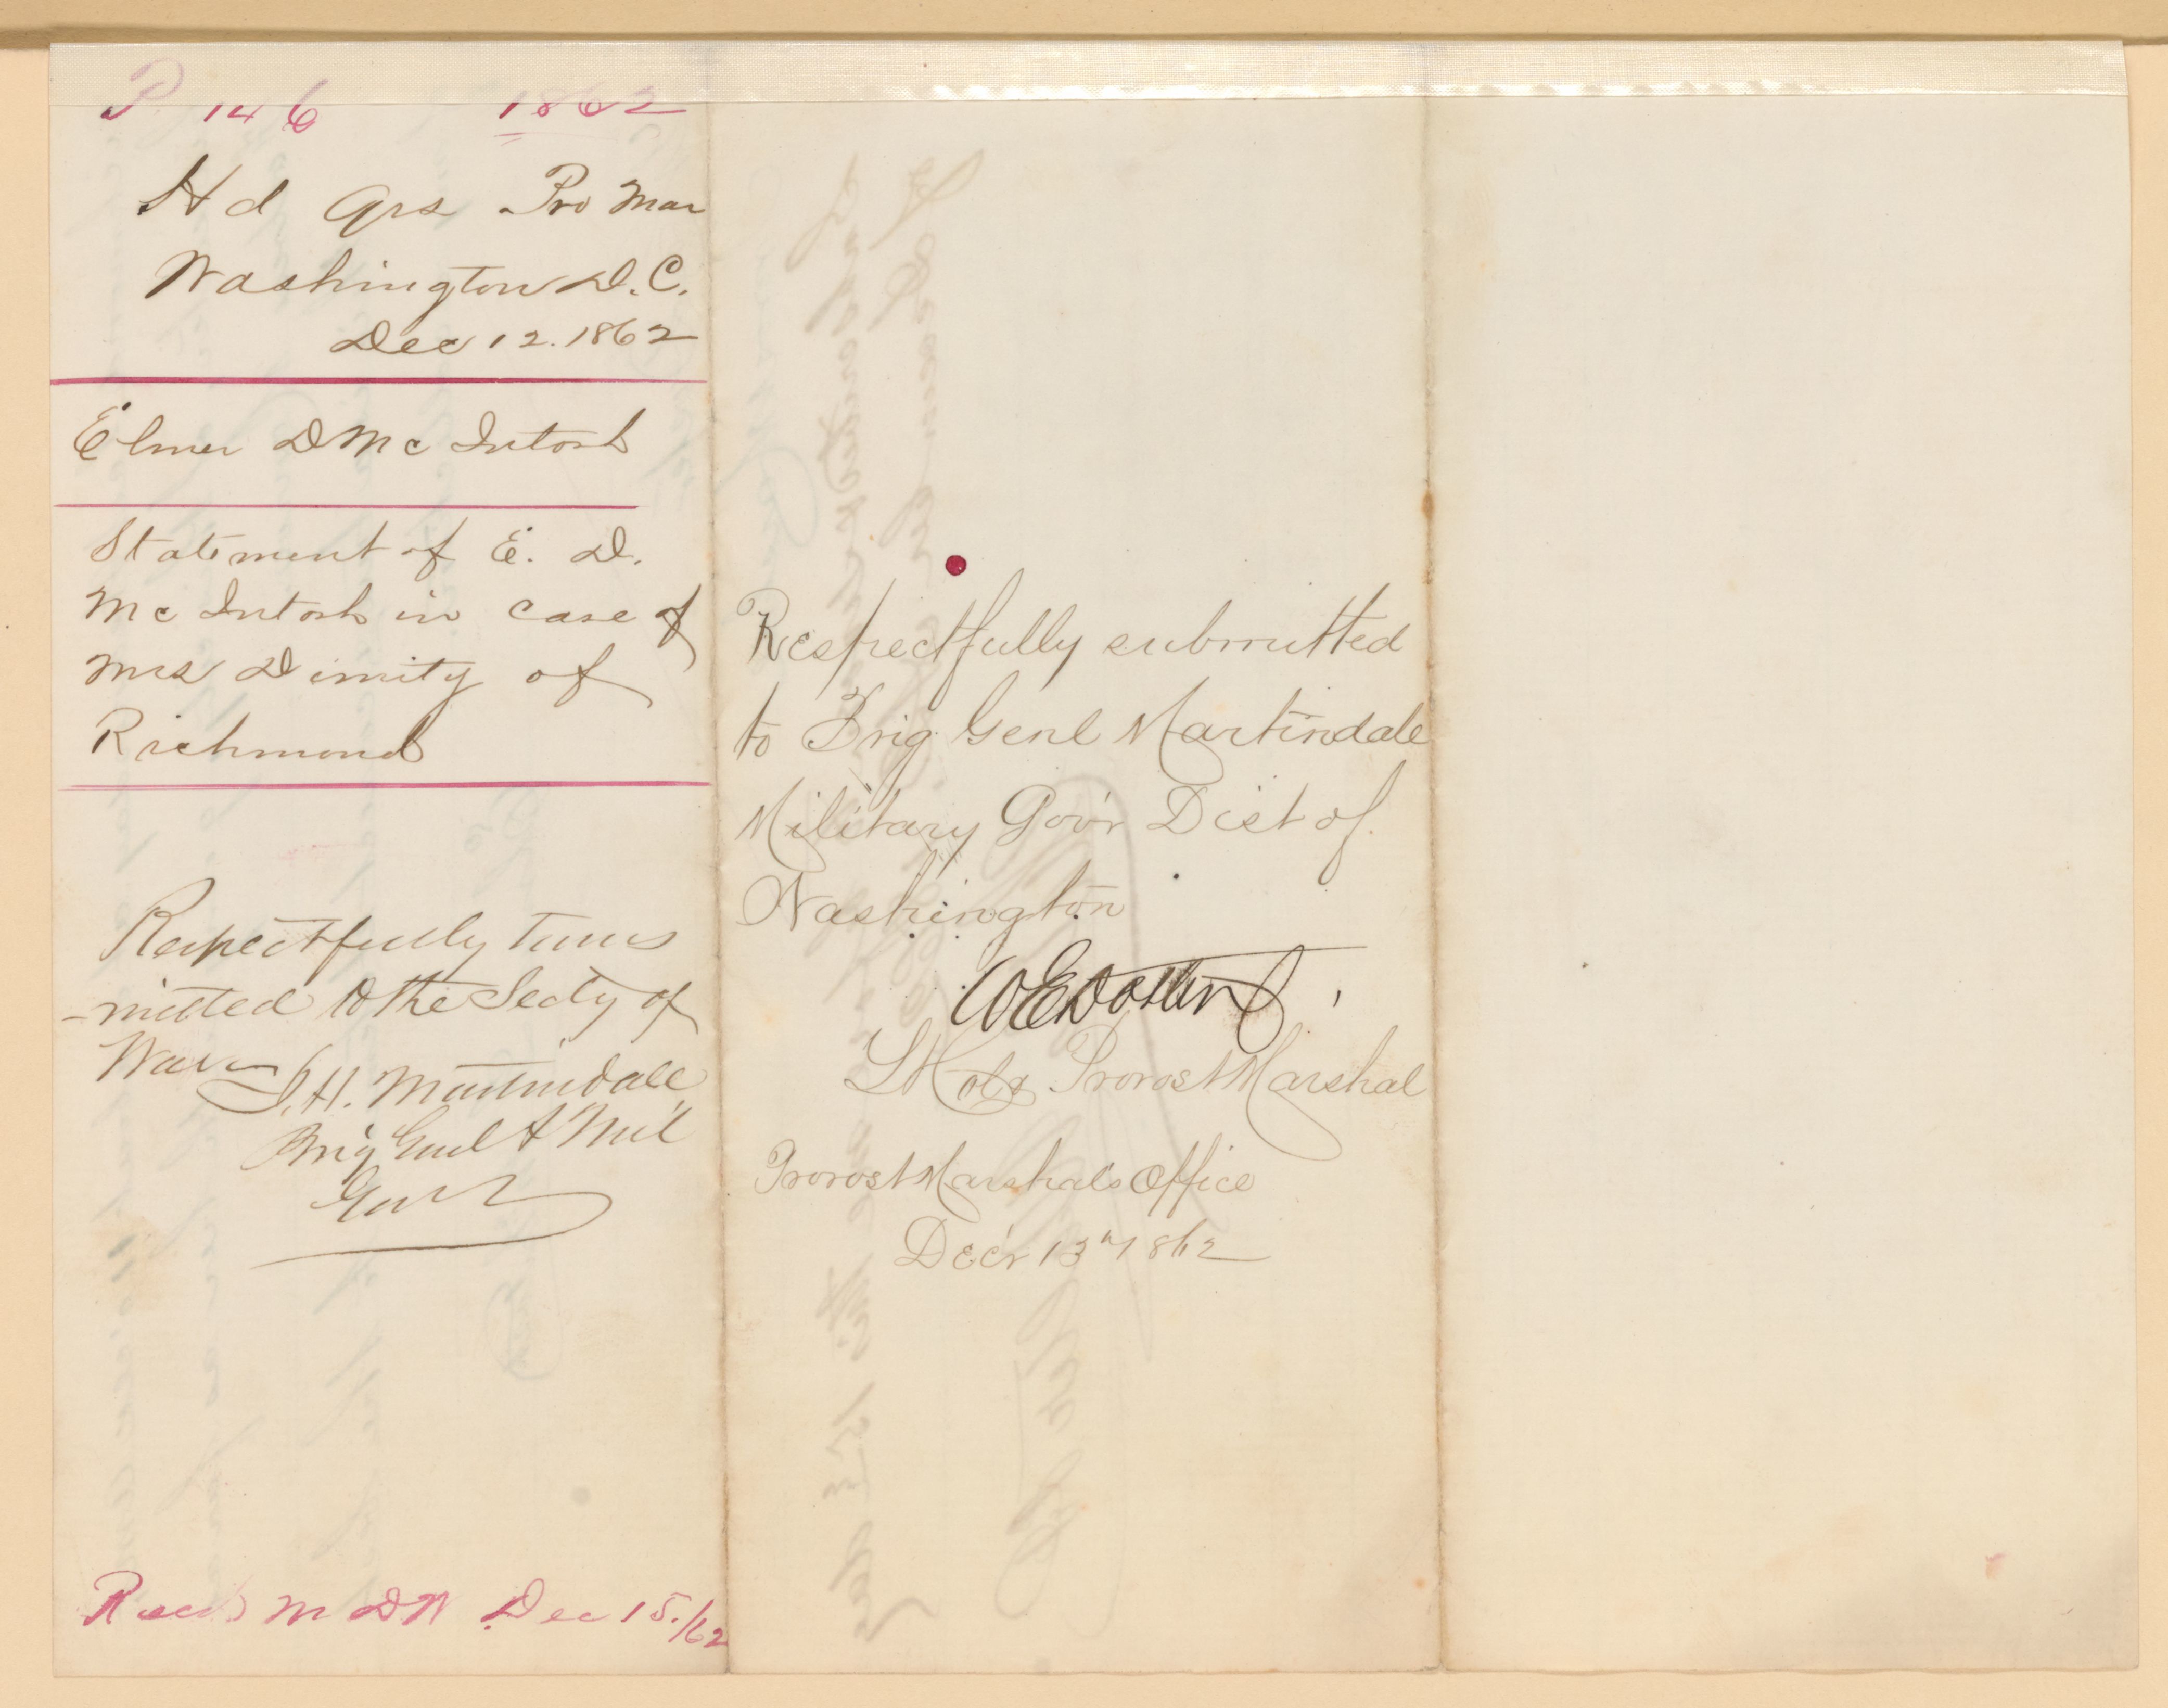 P 146 1862
Hd Qrs Pro Mar
Washington D.C.
Dec 12. 1862
Elmer D Mc Intosh
Statement of E. D.
Mc Intosh in case of
Mrs Dimity of
Richmond
Respectfully trans
-mitted to the Secty of
War
J. H. Martindale
Brig Genl & Mil
Gov
Recd M D W Dec 15./62
Respectfully submitted
to Brig Genl Martindale
Military Gov'r Dist of
Washington
W E Doster
Provost Marshal
Provost Marshals Office
Dec'r 13" 1862